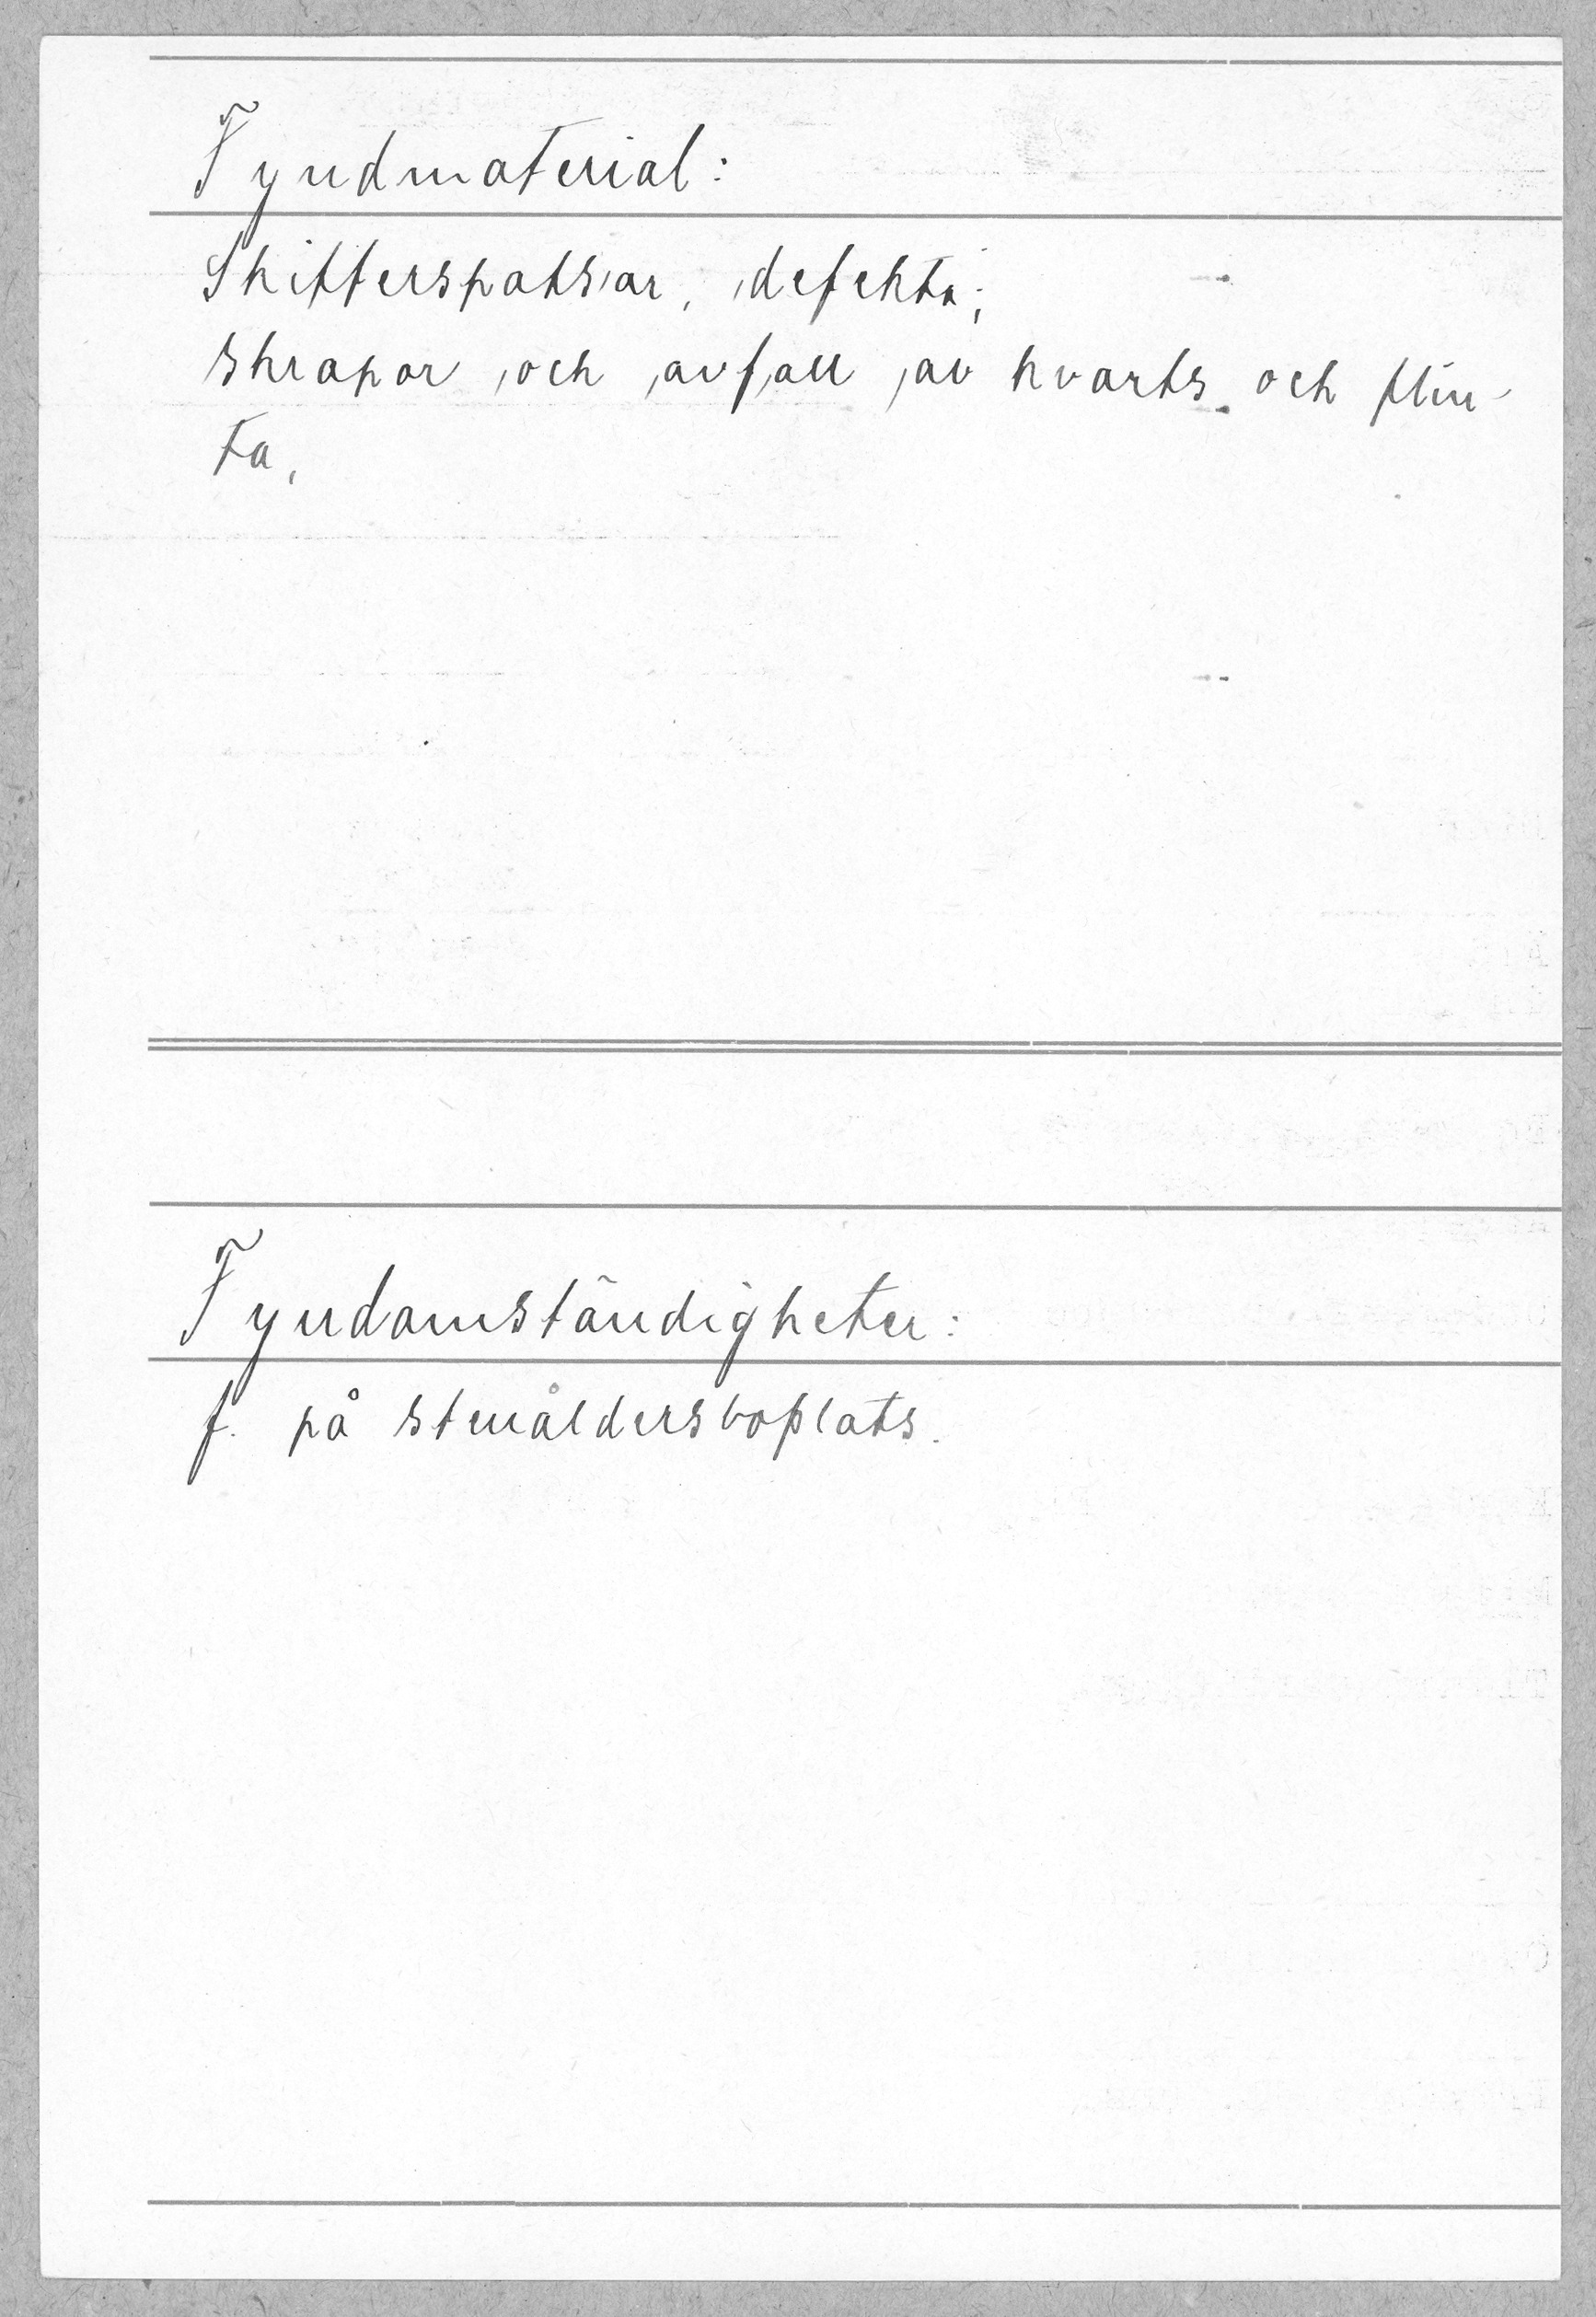 Fyndmaterial:
Skifferspatsar, defekta;
skrapor och avfall av kvarts och flin-
ta,
Fyndomständigheter:
f. på stenåldersboplats.